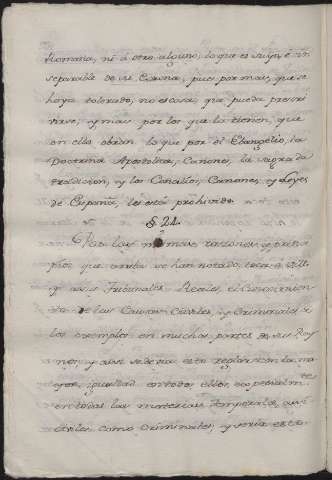 Romana, ni á otro alguno, lo que es suyo, é in
separable de su Corona, pues por mas, que se
haya tolerado, no es cosa, que pueda prescri
virse, y mas por los que la tienen, que
en ello obran lo que por el Evangelio, la
Doctrina Apostolica, Canones, la sagrada
tradicion, y los Concilios, Canones, y Leyes
de España, les está prohivido.
§. 22.
Por las mismas razones, y princi
pios que arriba se han notado, toca á
y a sus Tribunales Reales, el Conocimien
to de las Causas Civiles, y Criminales
los exemptos en muchas partes de sus Rey
nos, y assi se devia esta reglar con la ma
yor igualdad en todos ellos, especialmte
en todas las materias temporales, assi
Civiles como Criminales, y seria esta